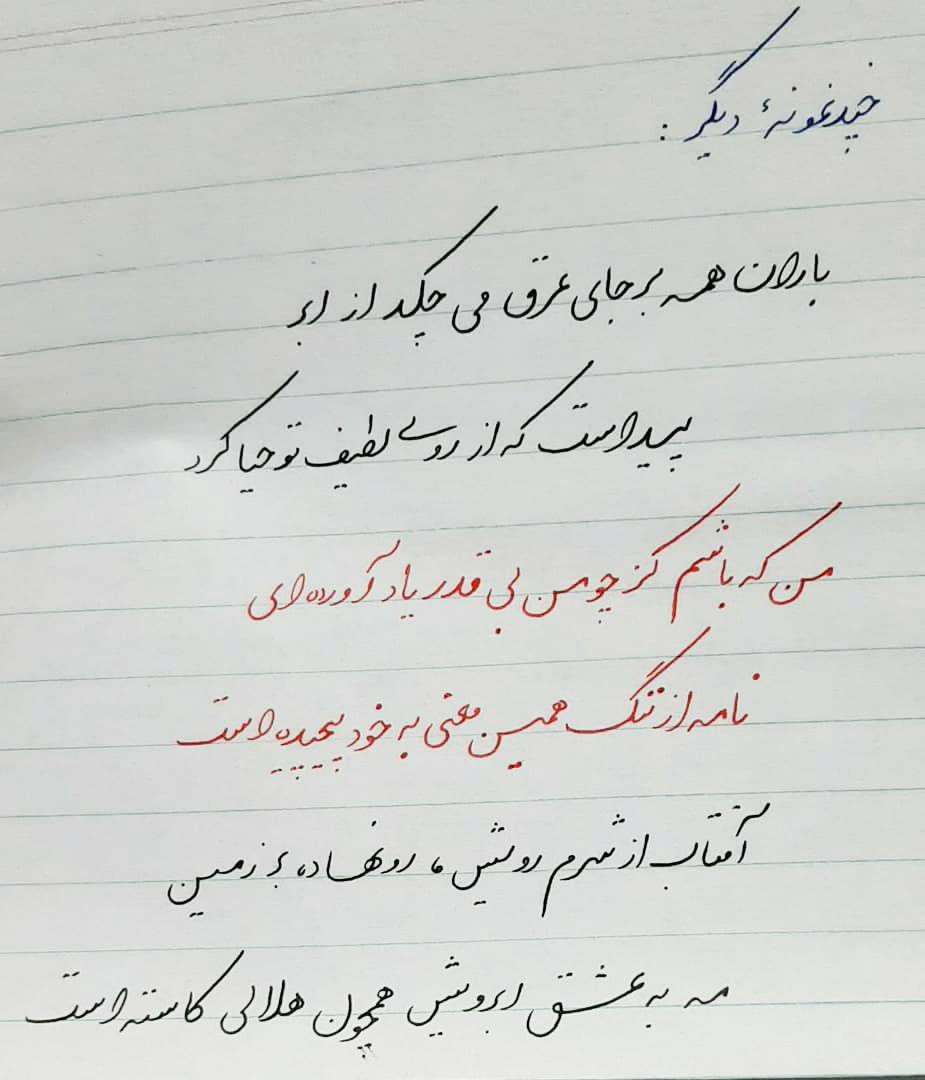 چند نمونهٔ دیگر :
باران همه بر جای عرق می چکد از ابر
پیداست که از روی لطیف تو حیا کرد
من که باشم کز چو من بی قدر یاد آورده ای
نامه از ننگ همین معنی به خود پیچیده است
آفتاب از شرم رویش، رو نهاده بر زمین
مه به عشق ابرویش همچون هلالی کاسته است